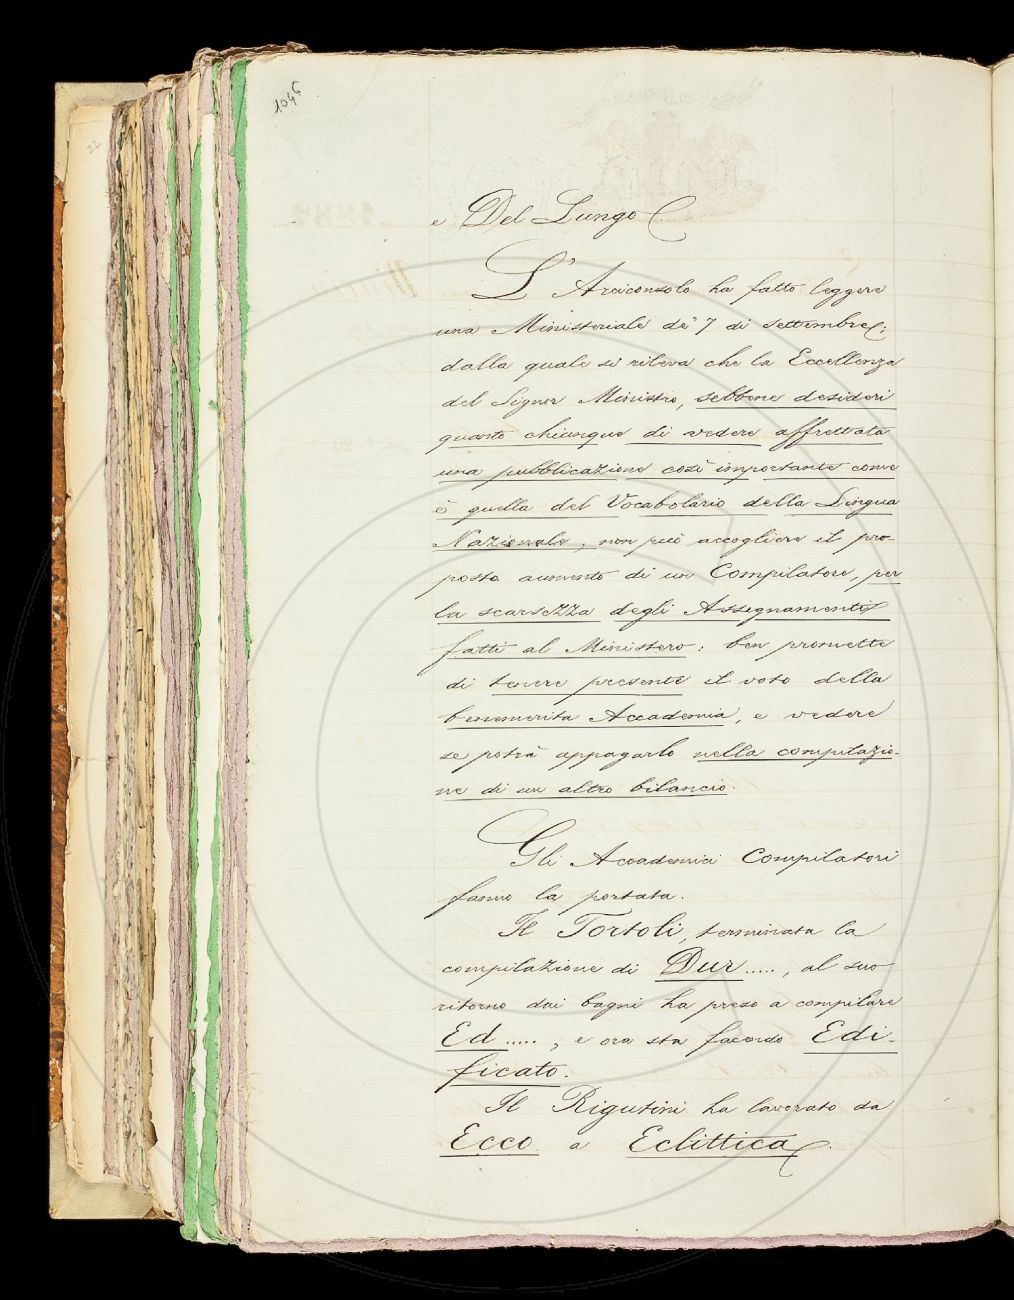 1046
22
e Del Lungo.
L'Arciconsolo ha fatto leggere
una Ministeriale de' 7 di settembre;
dalla quale si rileva che la Eccellenza
del Signor Ministro, sebbene desideri
quanto chiunque di vedere affrettata
una pubblicazione così importante come
è quella del Vocabolario della Lingua
Nazionale, non può accogliere il pro-
posto aumento di un Compilatore, per
la scarsezza degli Assegnamenti
fatti al Ministero: ben promette
di tenere presente il voto della
benemerita Accademia, e vedere
se potrà appagarlo nella compilazio-
ne di un altro bilancio.
Gli Accademici Compilatori
fanno la portata.
Il Tortoli, terminata la
compilazione di Dur....., al suo
ritorno dai bagni ha preso a compilare
Ed....., e ora sta facendo Edi-
ficato.
Il Rigutini ha lavorato da
Ecco a Eclittica.